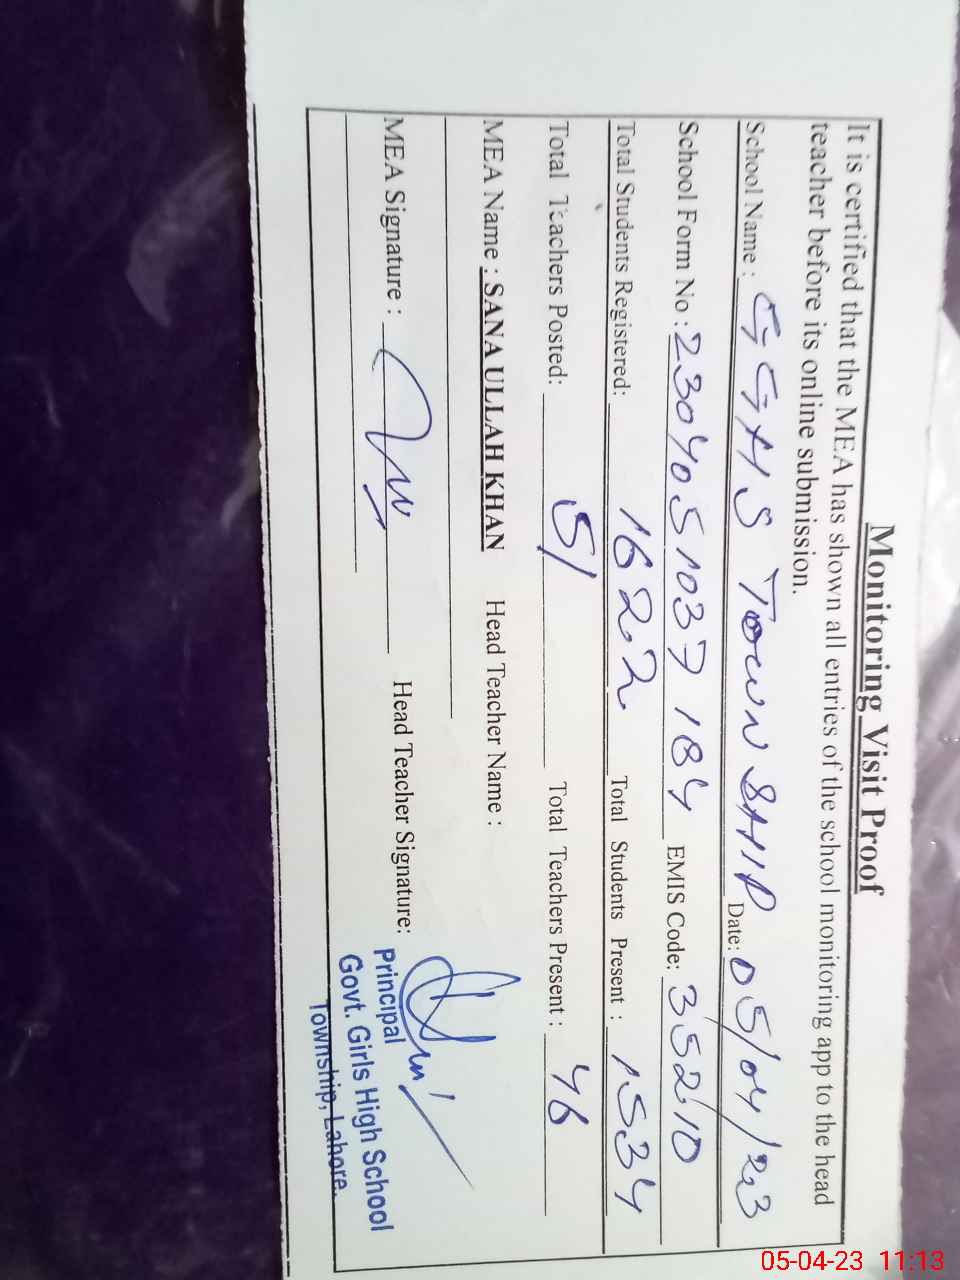 Monitoring Visit Proof
It is certified that the MEA has shown all entries of the school monitoring app to the head
teacher before its online submission.
School Name : GGHS TOWN SHIP Date: 05/04/23
School Form No : 2304051037184 EMIS Code: 35210
Total Students Registered: 1622 Total Students Present : 1534
Total Teachers Posted: 51 Total Teachers Present : 46
MEA Name : SANA ULLAH KHAN Head Teacher Name :
MEA Signature : Head Teacher Signature:
Principal
Govt. Girls High School
Township, Lahore.
05-04-23 11:13